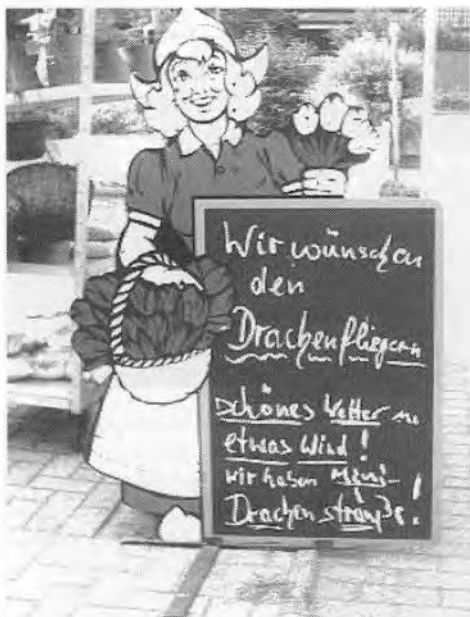 Wir wünschen
den
Drachenfliegern
schönes Wetter
etwas Wind!
wir haben Mini-
Drachensträuße!